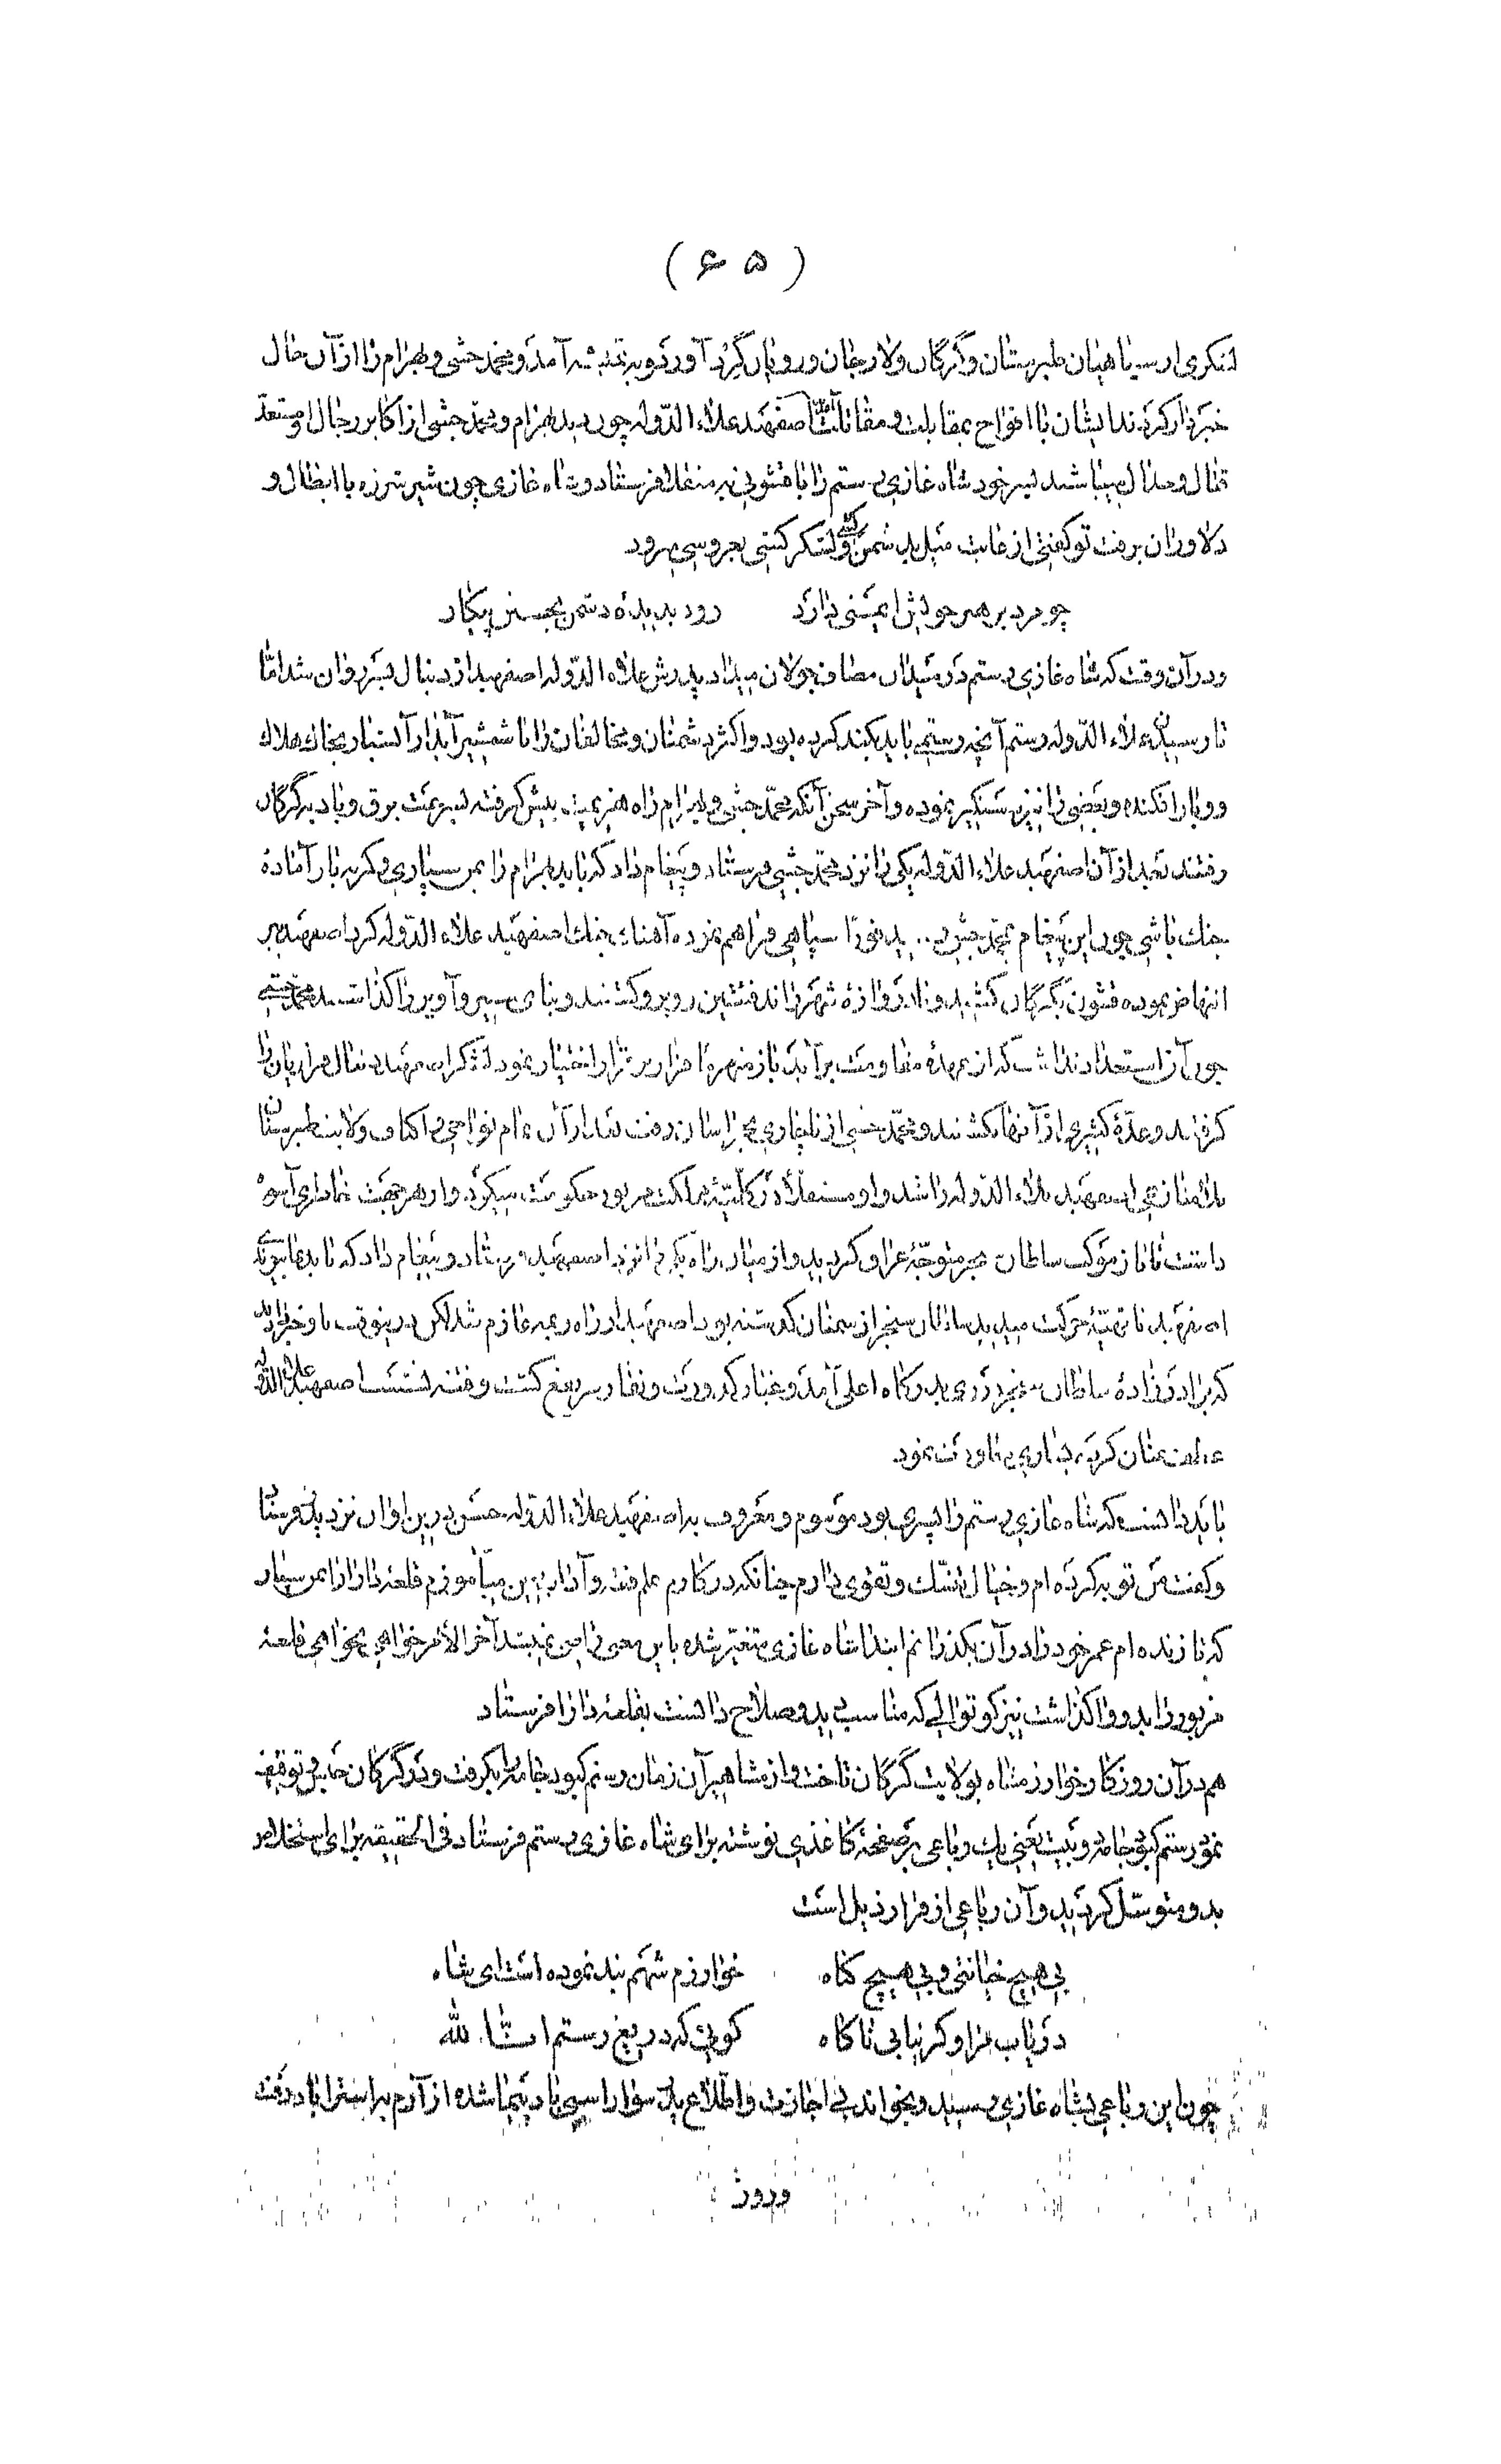 ( ۶۵ )
لشکری از سپاهیان طبرستان و گرگان و لارجان و رویان گرد آورد و به تمیشه آمد و محمد حبشی و بهرام را از آن حال
خبردار کردند ایشان با افواج بمقابلت و مقاتلت آمدند اصفهبد علاء الدوله چون دید بهرام و محمد حبشی از اکابر رجال و مستعد
قتال و جدال میباشند پسر خود شاه غازی رستم را با قشونی به فرستاد و شاه غازی چون شیر شرزه با ابطال و
دلاوران برفت تو گفتی از غایت میل بدشمن کشی و لشکر کشی بعروسی میرود
چو مرد بر هنر خویش ایمنی دارد رود بدیده دشمن بجستن پیکار
و در آن وقت که شاه غازی رستم در میدان مصاف جولان میداد پدرش علاء الدوله اصفهبد از دنبال پسر روان شد امّا
تا رسیدن علاء الدوله رستم آنچه رستم باید بکند کرده بود و اکثر دشمنان و مخالفان را با شمشیر آبدار آتشبار بخاک هلاک
و وبار افکنده و بعضی را نیز دستگیر نموده و آخر سخن آنکه محمّد حبشی و بهرام راه هزیمت پیش گرفته بسرعت برق و باد بگرگان
رفتند بعد از آن اصفهبد علاء الدوله یکی را نزد محمّد حبشی فرستاد و پیغام داد که باید بهرام را بمن سپاری و گرنه باز آماده
جنک باشی چون این پیغام بمحمد حبشی رسید فورًا سپاهی فراهم نموده آهنک جنک اصفهبد علاء الدوله کرد اصفهبد نیز
انتهاض نموده قشون بگرگان کشید و نزد دروازهٔ شهر تلاقی فئتین روبرو گشتند و بنای ستیز و آویز را گذاشتند محمّد حبشی
چون آن استعداد نداشت که از عهدهٔ مقاومت برآید باز منهزمًا فرار بر قرار اختیار نمود لشکر اصفهبد دنبال فراریان را
گرفتند و عدّهٔ کثیری از آنها بکشتند و محمّد حبشی از ناچاری بخراسان رفت بعد از آن تمام نواحی و اکناف ولایت طبرستان
بلا منازعی اصفهبد علاء الدوله را شد و او مستقلّاً در کلیّهٔ مملکت مزبور حکومت میکرد و از هر جهت خاطری آسوده
داشت تا باز موکب سلطان سنجر متوجّهٔ عراق گردید و از میان راه یکی را نزد اصفهبد فرستاد و پیغام داد که باید بما پیوندی
اصفهبد تا تهیّهٔ حرکت میدید سلطان سنجر از سمنان گذشته بود اصفهبد از راه ویمه عازم شد لکن درینوقت باو خبر دادند
که برادرزادهٔ سلطان سنجر در ری بدرگاه اعلی آمد و غبار کدورت و نقار مرتفع گشت و فتنه نشست اصفهبد علاء الدوله
عطف عنان کرده بساری معاودت نمود
باید دانست که شاه غازی رستم را پسری بود موسوم و معروف به اصفهبد علاء الدوله حسن درین اوان نزد پدر فرستاد
و گفت من توبه کرده‌ام و خیال تنسّک و تقوی دارم چنانکه در کار علم فقه و آداب دین میآموزم قلعه دارا را بمن سپار
که تا زنده‌ام عمر خود را در آن بگذرانم ابتدا شاه غازی متغیّر شده باین معنی راضی نمیشد آخر الأمر خواهی نخواهی قلعهٔ
مزبور را بدو واگذاشت نیز کوتوالی که مناسب دید و صلاح دانست بقلعهٔ دارا فرستاد
هم در آن روزگار خوارزمشاه بولایت گرگان تاخت و از مشاهیر آن زمان رستم کبود جامه را بگرفت و در گرگان حبس توقیف
نمود رستم کبود جامه دو بیت یعنی یک رباعی بر صفحهٔ کاغذی نوشته برای شاه غازی رستم فرستاد فی الحقیقه برای استخلاص
بدو متوسّل گردید و آن رباعی از قرار ذیل است
بی هیچ خیانتی و بی هیچ گناه خوارزم شهم بند نموده است ای شاه
دریاب مرا و گر نیابی ناگاه گویی که دریغ رستم انّا لله
چون این رباعی بشاه غازی رسید و بخواند بی اجازت و اطّلاع پدر سوار اسبی باد پیما شده از آرم به استراباد رفت
و روز